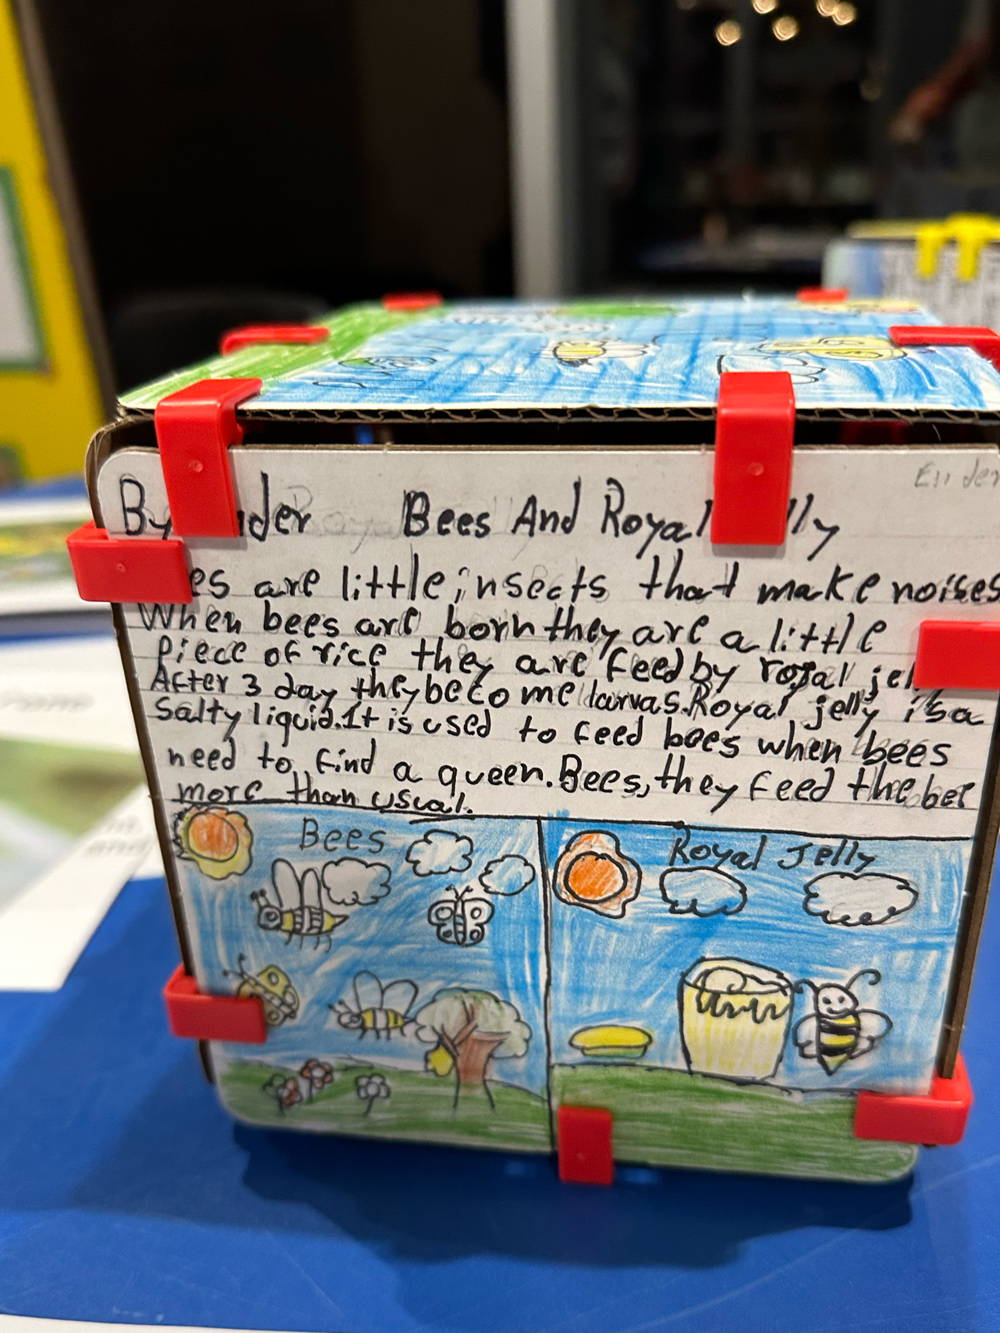 Ender
By nder Bees And Royal lly
es are little insects that make noises
When bees are born they are a little
Piece of rice they are feed by royal jel
After 3 day they become larvas. Royal jelly is a
salty liquid. It is used to feed bees when bees
need to find a queen. Bees, they feed the bee
more than usual.
Bees
Royal Jelly